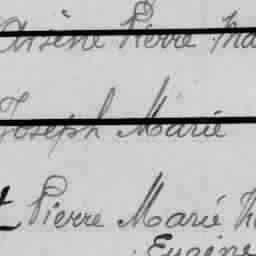 Arsène Pierre Ma
Joseph Marie
t Pierre Marie
Eugène